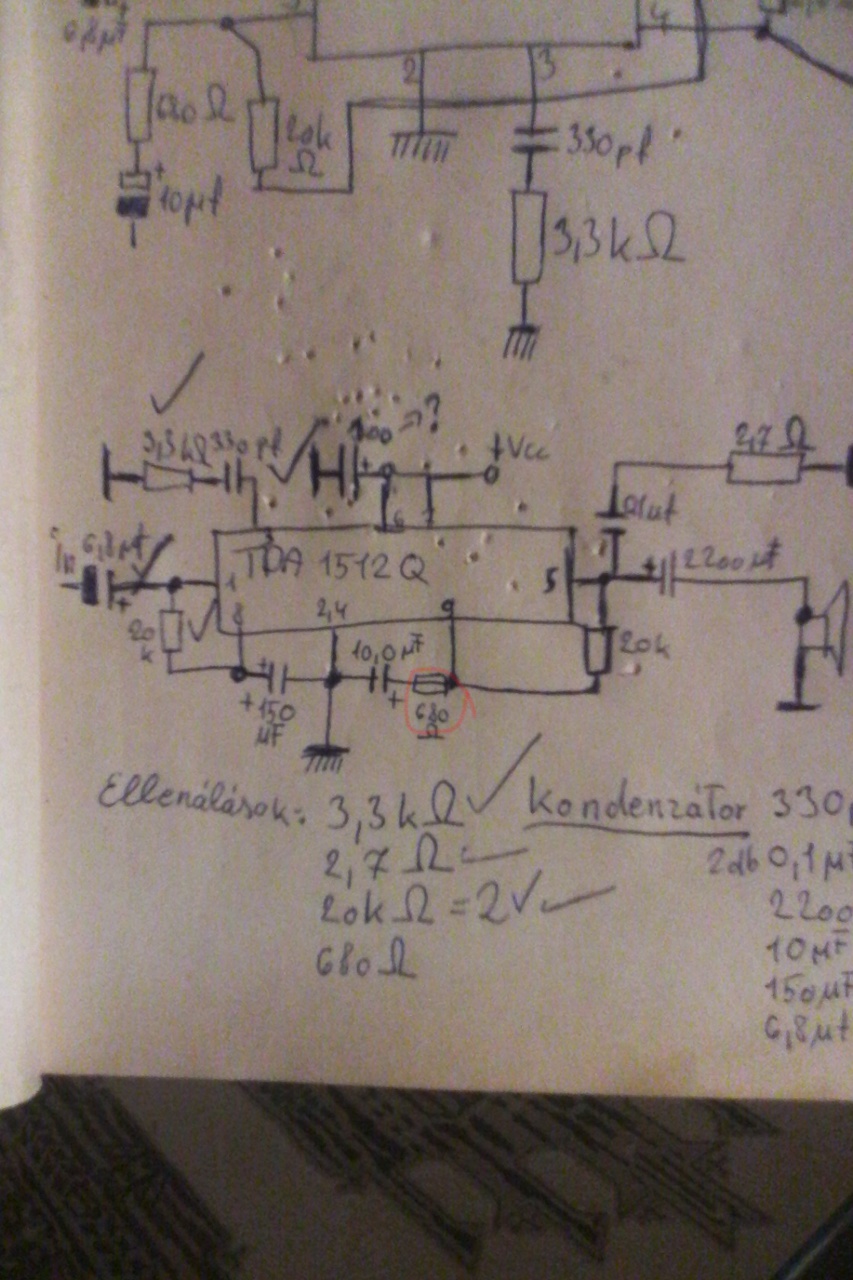 6,8µf
4
2
3
680Ω
20k
Ω
10µf
330pf
3,3kΩ
3,3kΩ 330pf
100 =>?
+Vcc
2,7Ω
6
7
0,1µf
In 6,8µf
+
TDA 1512Q
1
5
+
2200µF
8
2,4
9
20
k
20k
+
10,0µF
+
+150
µF
680
Ω
Ellenálások: 3,3kΩ
2,7Ω
20kΩ = 2
680Ω
Kondenzátor 330p
2db 0,1µF
2200
10µF
150µF
6,8µf